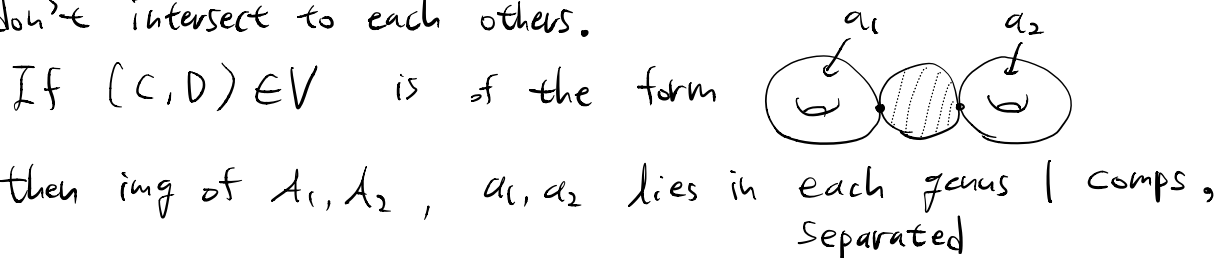 don't intersect to each others.
a₁ a₂
If (C, D) ∈ V is of the form
then img of A₁, A₂, a₁, a₂ lies in each genus 1 comps,
separated